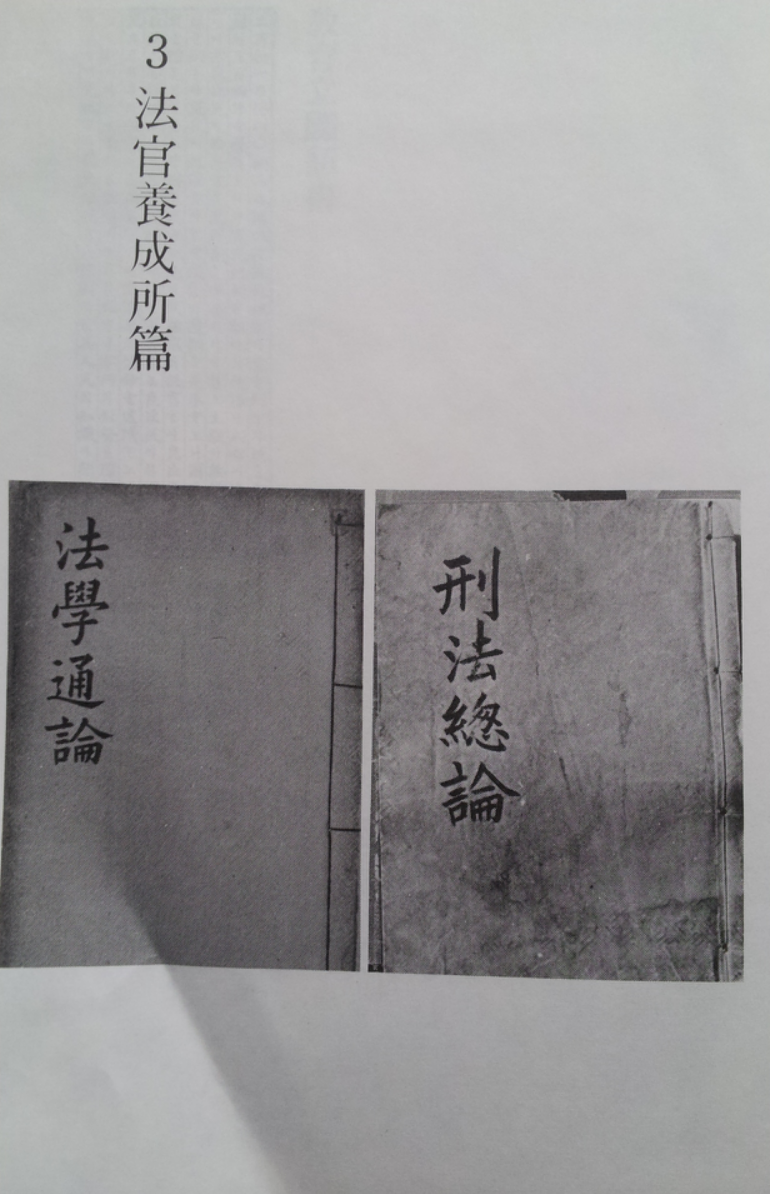 3 法官養成所篇
法學通論
刑法總論